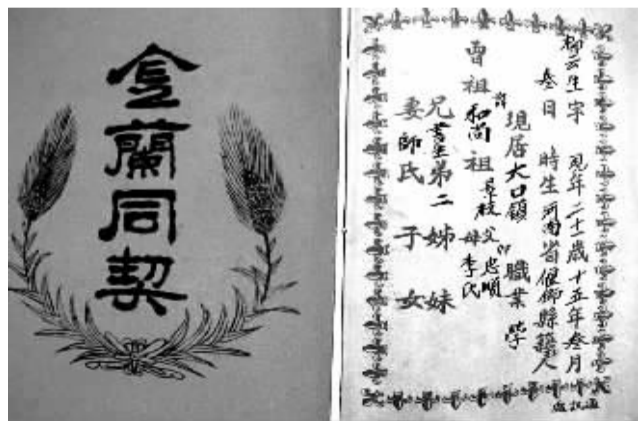 金蘭同契
柳云生字 現年二十一歲十五年叁月
叁日 時生河南省偃師縣籍人
現居大口領 職業 學
曾祖和尚祖景枝父忠順母李氏
兄書生弟二姊妹
妻師氏子女